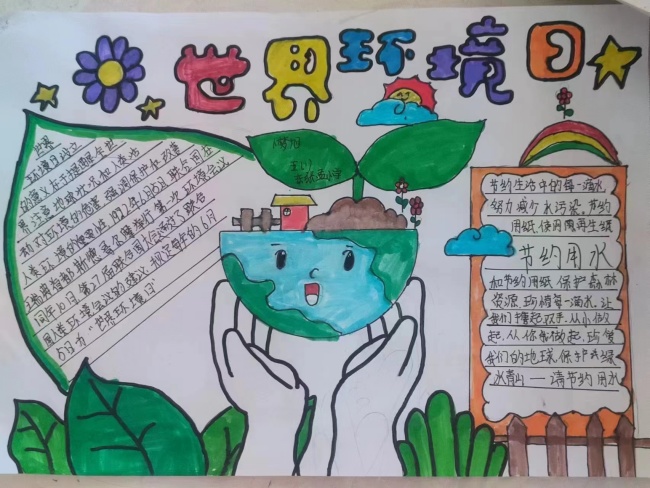 世界环境日
世界
环境日的设立
的意义在于提醒全世
界注意地球状况和人类活
动对环境的危害。强调保护和改善
人类环境的重要性。1972年6月5日联合国在
瑞典首都斯德哥尔摩举行第一次环境会议
同年10月第27届联合国大会通过了联合
国人类环境会议的建议规定每年的6月
5日为“世界环境日”
节约生活中的每一滴水,
努力减少水污染。节约
用纸,使用再生纸
节约用水
加节约用纸,保护森林
资源,珍惜每一滴水,让
我们携起双手。从小做
起,从你我做起,珍爱
我们的地球,保护我绿
水青山——请节约用水